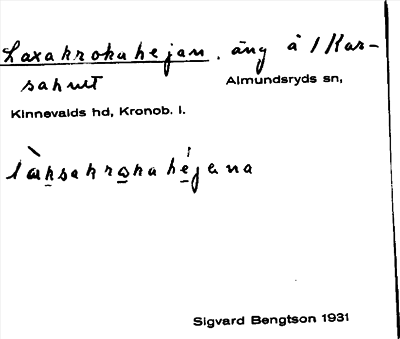 Laxakrokahejan. äng å 1/ Kar-
sahult
Almundsryds sn,
Kinnevalds hd, Kronob. l.
làksakrokahéjana
Sigvard Bengtson 1931